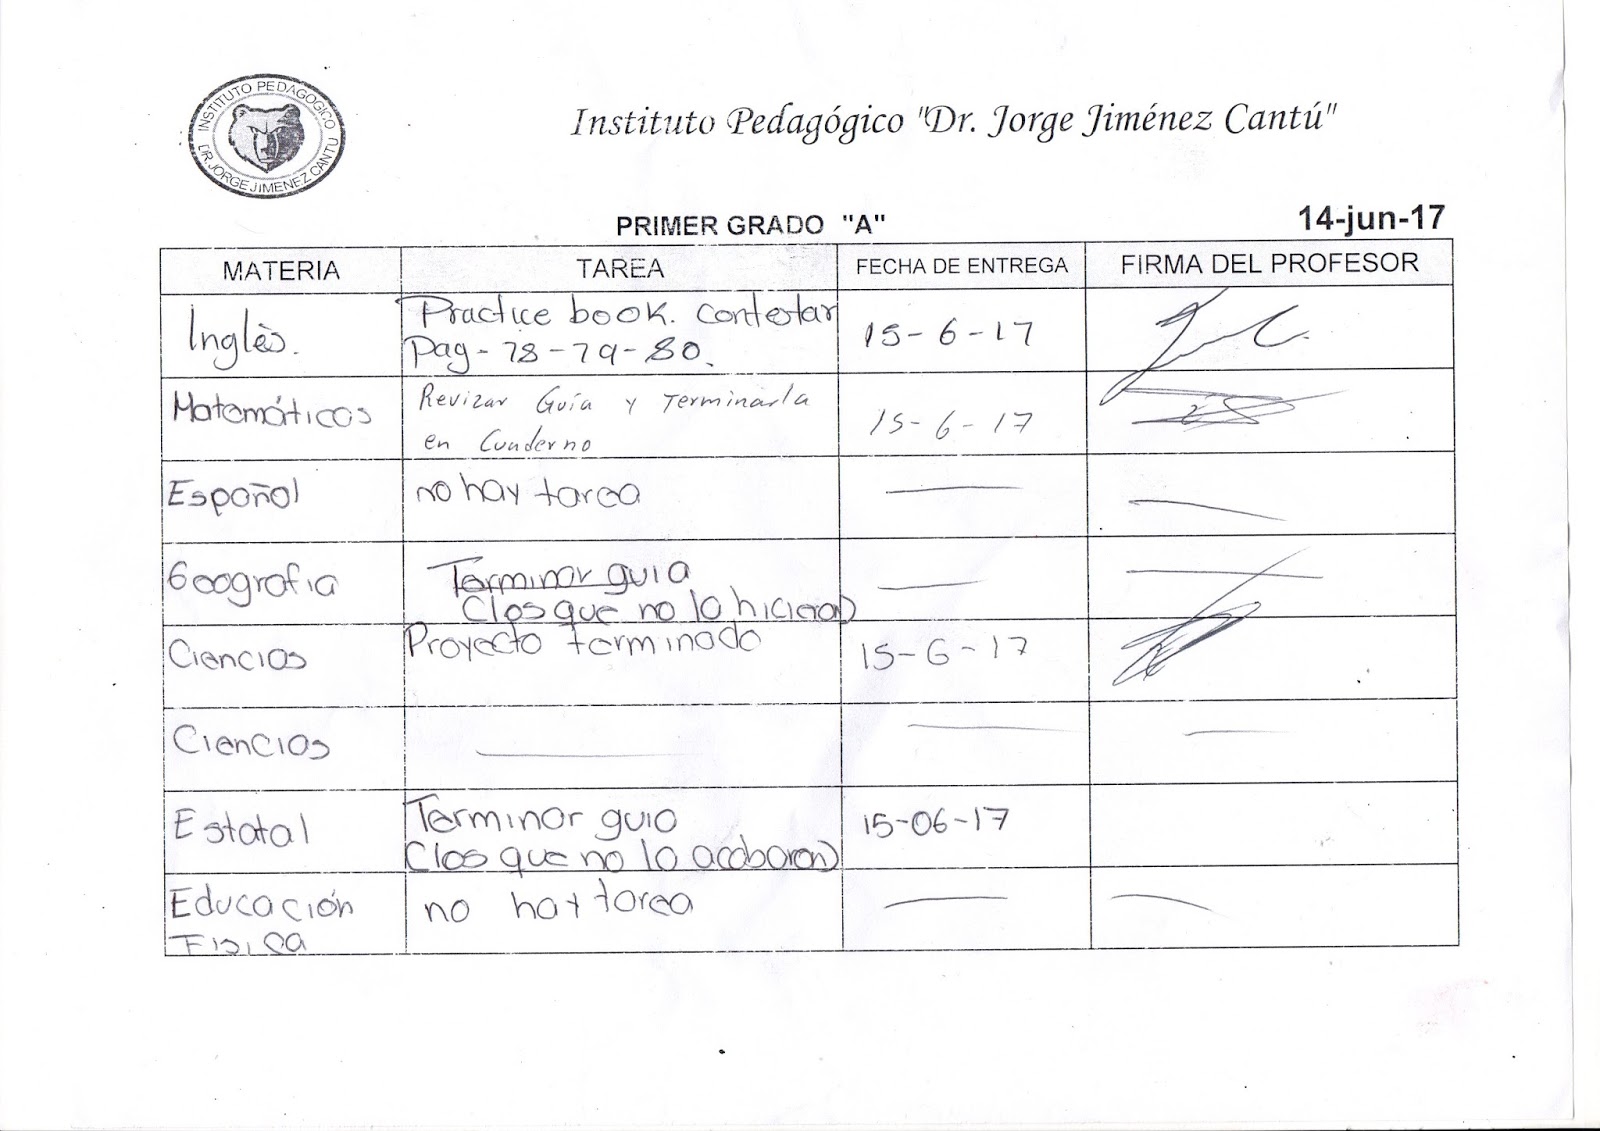 INSTITUTO PEDAGOGICO
DR. JORGE JIMENEZ CANTU
Instituto Pedagógico "Dr. Jorge Jiménez Cantú"
PRIMER GRADO "A"
14-jun-17
MATERIA TAREA FECHA DE ENTREGA FIRMA DEL PROFESOR
Inglès. Practice book. contestar 15-6-17
pag-78-79-80.
Matemáticas Revizar Guía y Terminarla 15-6-17
en Cuaderno
Español no hay tarea
Geografia Terminar guia
(los que no lo hicieron)
Ciencias Proyecto terminado 15-6-17
Ciencias
Estatal Terminar guia 15-06-17
(los que no lo acabaron)
Educación no hay tarea
FISICA